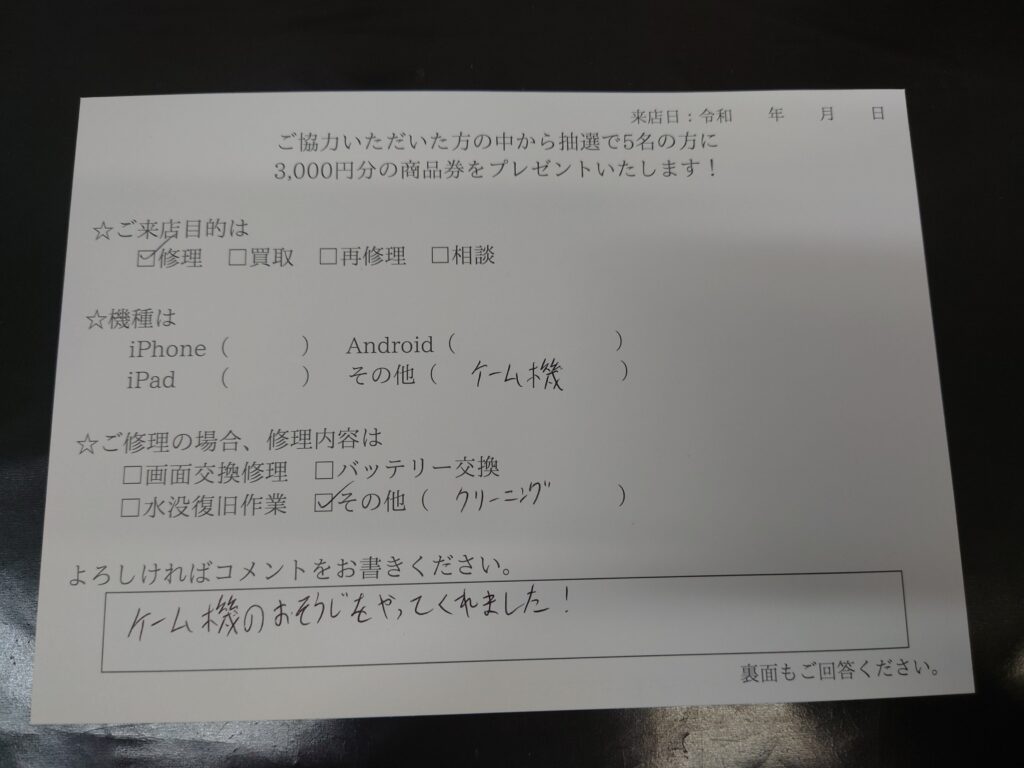 来店日：令和　　年　　月　　日
ご協力いただいた方の中から抽選で5名の方に
3,000円分の商品券をプレゼントいたします！
☆ご来店目的は
☑修理　□買取　□再修理　□相談
☆機種は
iPhone（　　　）　Android（　　　　　　　）
iPad　（　　　）　その他（　ケーム機　　）
☆ご修理の場合、修理内容は
□画面交換修理　□バッテリー交換
□水没復旧作業　☑その他（　クリーニング　　）
よろしければコメントをお書きください。
ケーム機のおそうじをやってくれました！
裏面もご回答ください。